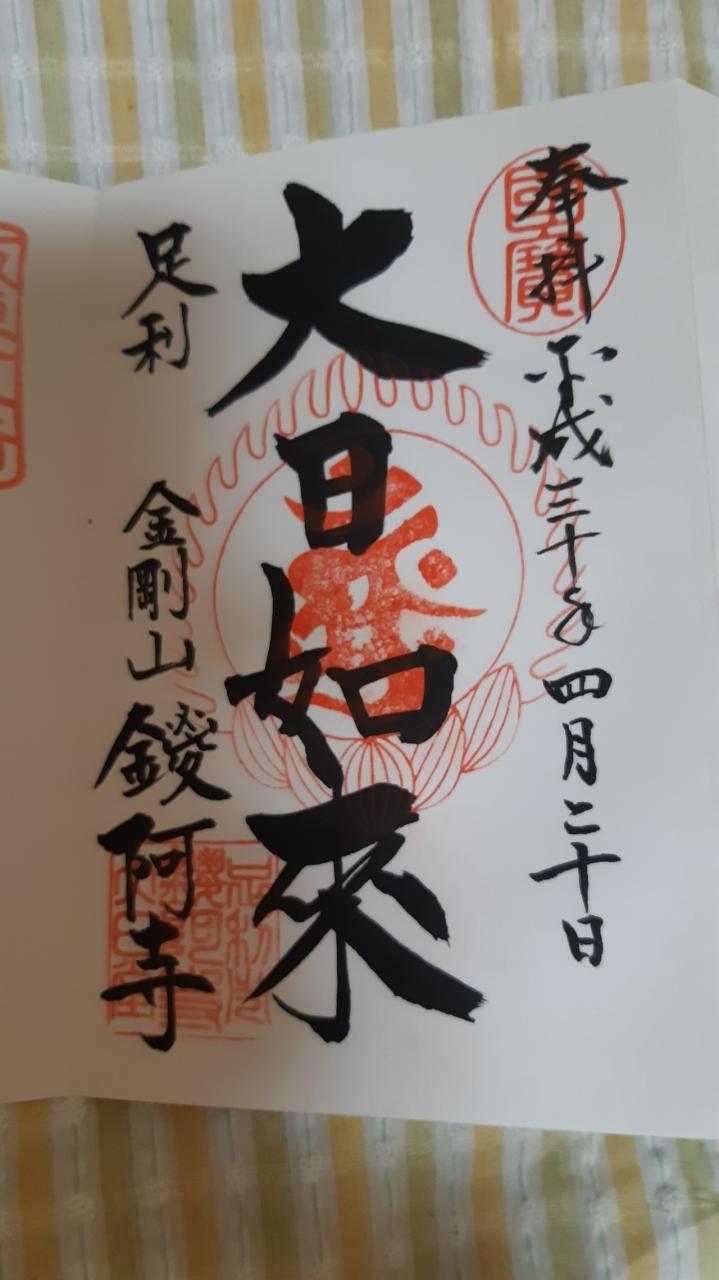 奉拝
國寶
平成三十年四月二十日
大日如來
足利
金剛山鑁阿寺